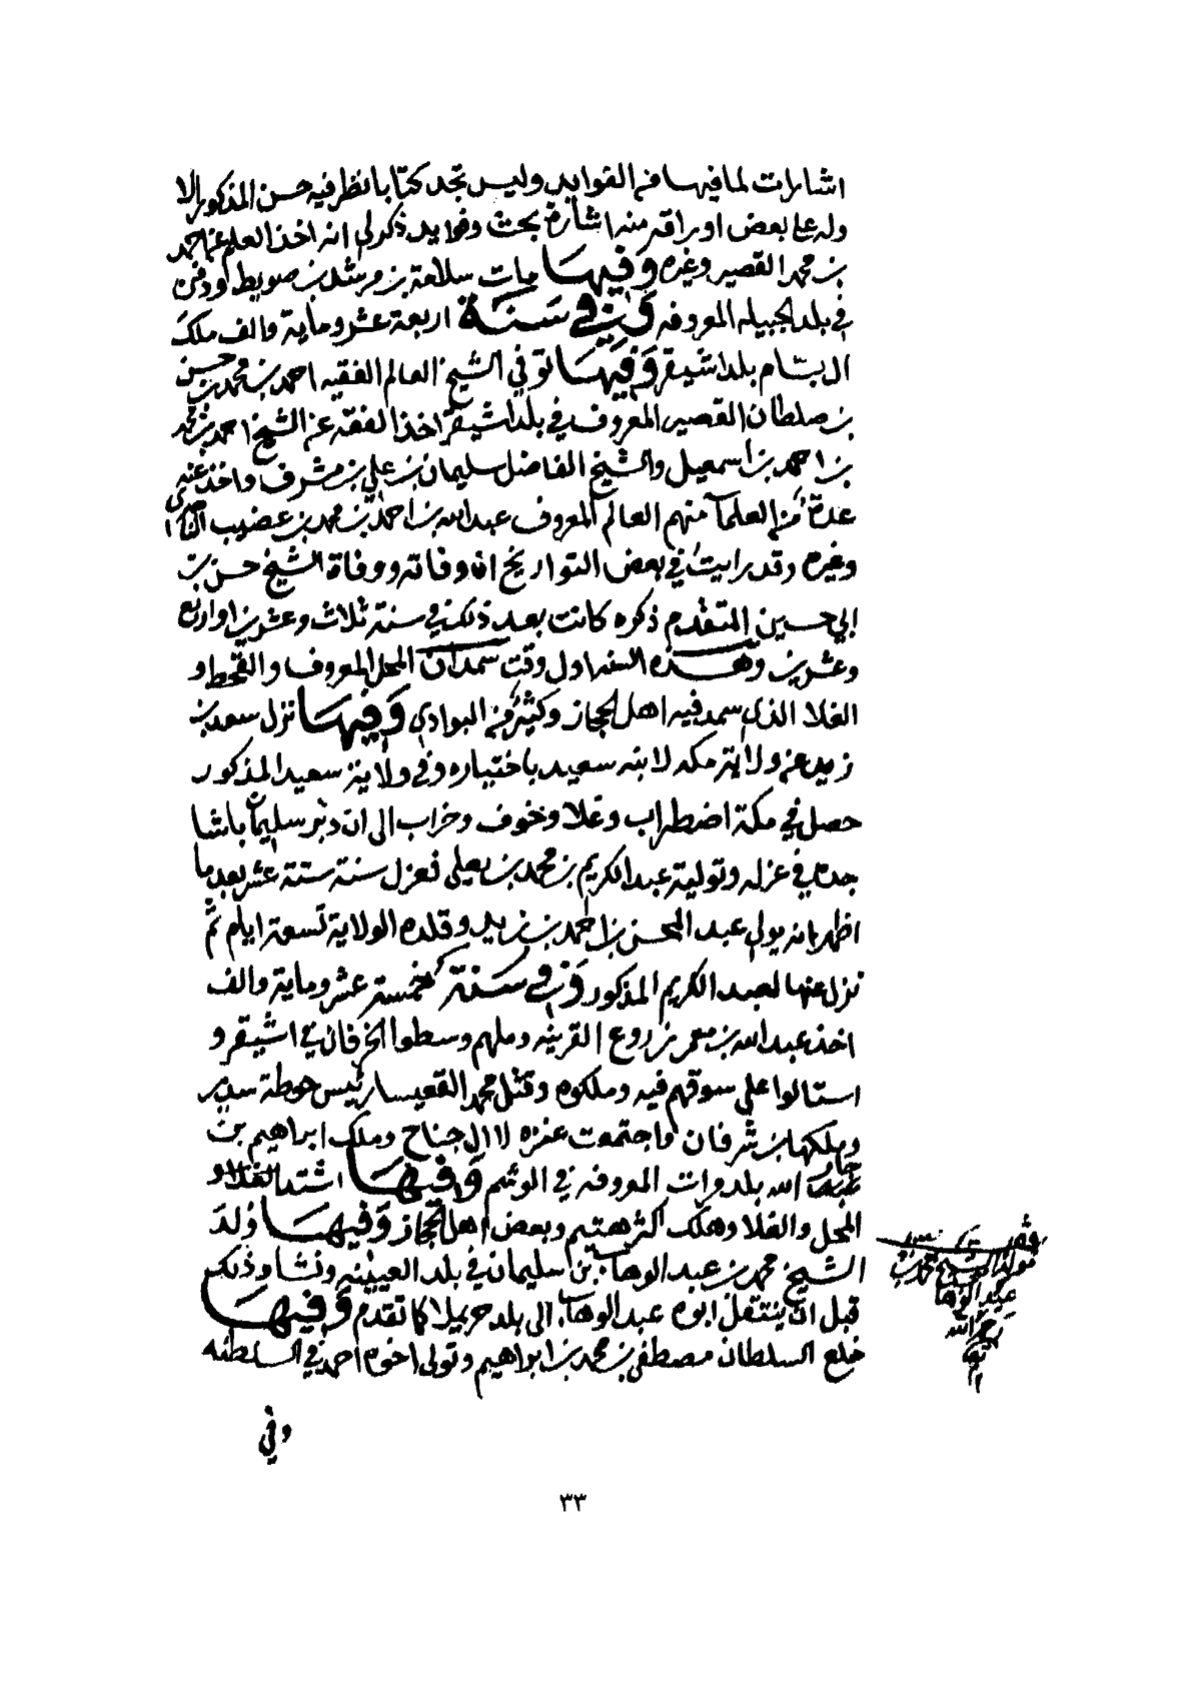 اشارات لما فيها من الفوايد وليس تجد كتابا نظر فيه حسن المذكور الا
وله على بعض اوراقه منه اشارة بحث وفوايد ذكر لي انه اخذ العلم عن احمد
بن محمد القصير وغيره وفيها مات سلامة بن مرشد بن صويط ودفن
في بلد الجبيله المعروفه وفي سنة اربعة عشر وماية والف ملك
ال بسام بلد اشيقر وفيها توفي الشيخ العالم الفقيه احمد بن محمد بن حسن
بن سلطان القصير المعروف في بلد اشيقر اخذ الفقه عن الشيخ احمد بن محمد
بن احمد بن اسمعيل والشيخ الفاضل سليمان بن علي بن مشرف واخذ عنه
عدة من العلما منهم العالم المعروف عبد الله بن احمد بن محمد بن عضيب الناصري
وغيره وقد رايت في بعض التواريخ ان وفاته ووفاة الشيخ حسن بن
ابي حسين المتقدم ذكره كانت بعد ذلك في سنة ثلاث وعشرين او اربع
وعشرين وهذه السنه اول وقت سمدان المحل المعروف والقحط و
الغلا الذي سمد فيه اهل الحجاز وكثير من البوادي وفيها نزل سعد بن
زيد عن ولاية مكه لابنه سعيد باختياره وفي ولاية سعيد المذكور
حصل في مكة اضطراب وغلا وخوف وخراب الى ان دبر سليمان باشا
جده في عزله وتولية عبد الكريم بن محمد بن يعلى فعزل سنة ستة عشر بعد ما
اظهر بانه يولي عبد المحسن بن احمد بن زيد وقلده الولاية تسعة ايام ثم
نزل عنها لعبد الكريم المذكور وفي سنة خمسة عشر وماية والف
اخذ عبد الله بن معمر زروع القرينه وملهم وسطوا الخرفان في اشيقر و
استالوا على سوقهم فيه وملكوه وقتل محمد القعيسا رئيس حوطة سدير
وملكها بن شرفان واجتمعت عنزه لال جناح وملك ابراهيم بن
جار الله بلد مرات المعروفه في الوشم وفيها اشتد الغلا و
المحل والغلا وهلك اكثر هتيم وبعض اهل الحجاز وفيها ولد
الشيخ محمد بن عبد الوهاب بن سليمان في بلد العيينه ونشا وذلك
قبل ان ينتقل ابوه عبد الوهاب الى بلد حريملا كما تقدم وفيها
خلع السلطان مصطفى بن محمد بن ابراهيم وتولى اخوه احمد في السلطنه
وفي
مولد الشيخ محمد بن
عبد الوهاب
رحمه الله
٣٣